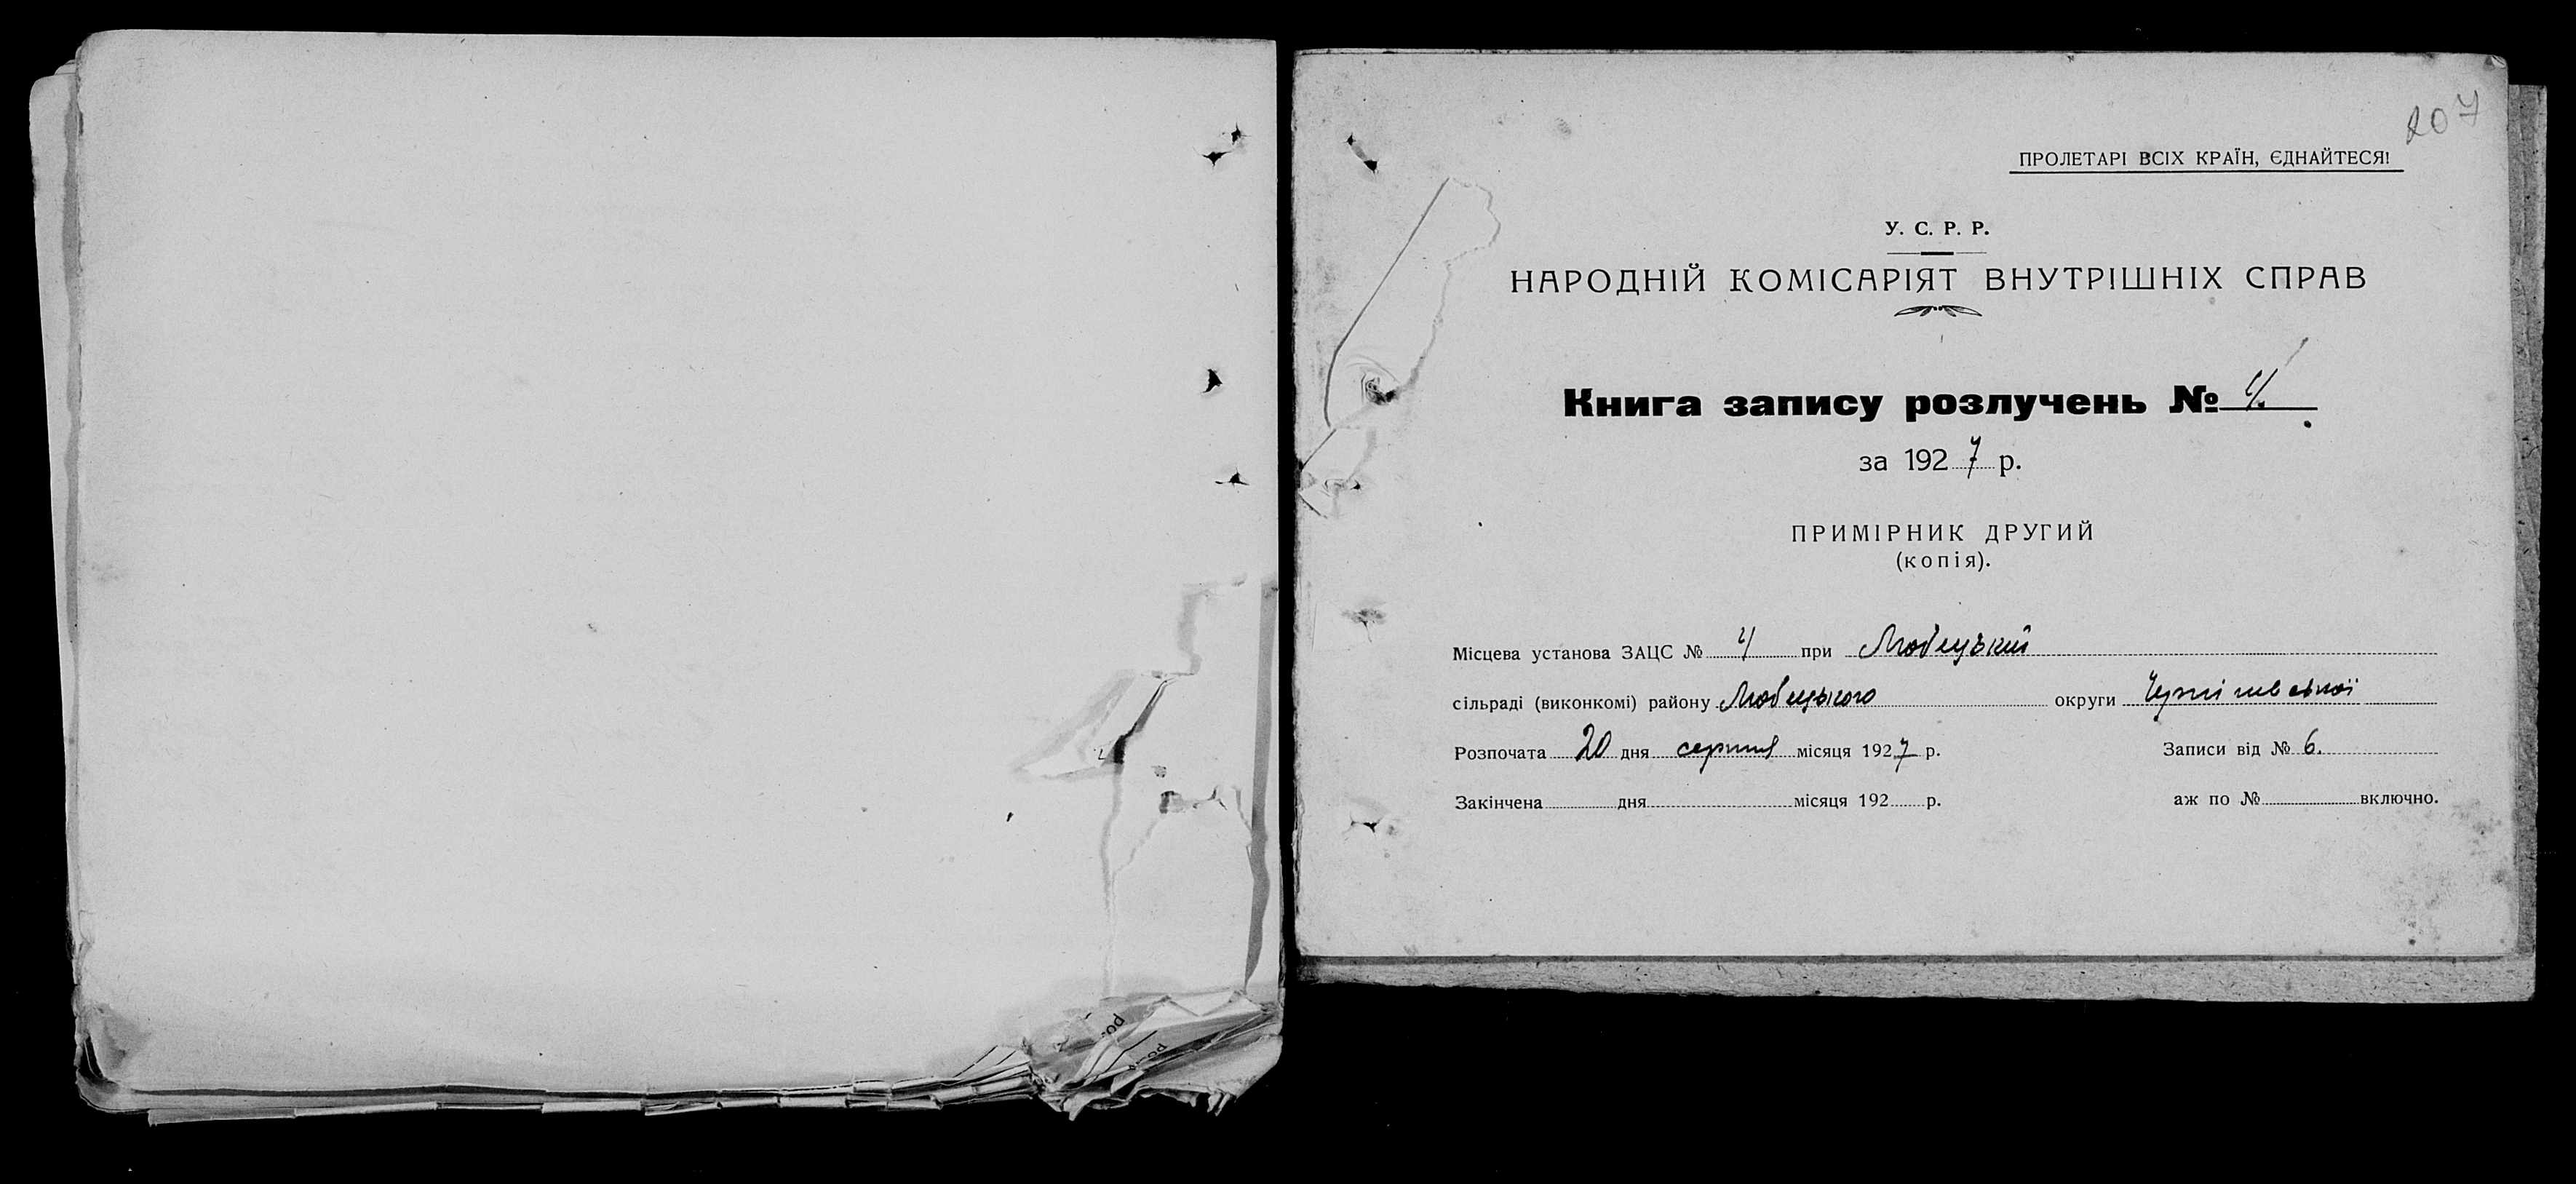 207
ПРОЛЕТАРІ ВСІХ КРАЇН, ЄДНАЙТЕСЯ!
У. С. Р. Р.
НАРОДНІЙ КОМІСАРІЯТ ВНУТРІШНІХ СПРАВ
Книга запису розлучень № 4.
за 1927 р.
ПРИМІРНИК ДРУГИЙ
(копія).
Місцева установа ЗАЦС № 4 при Любецький
сільраді (виконкомі) району Любецького округи Чернігівської
Розпочата 20 дня серпня місяця 1927 р. Записи від № 6.
Закінчена дня місяця 192 р. аж по № включно.